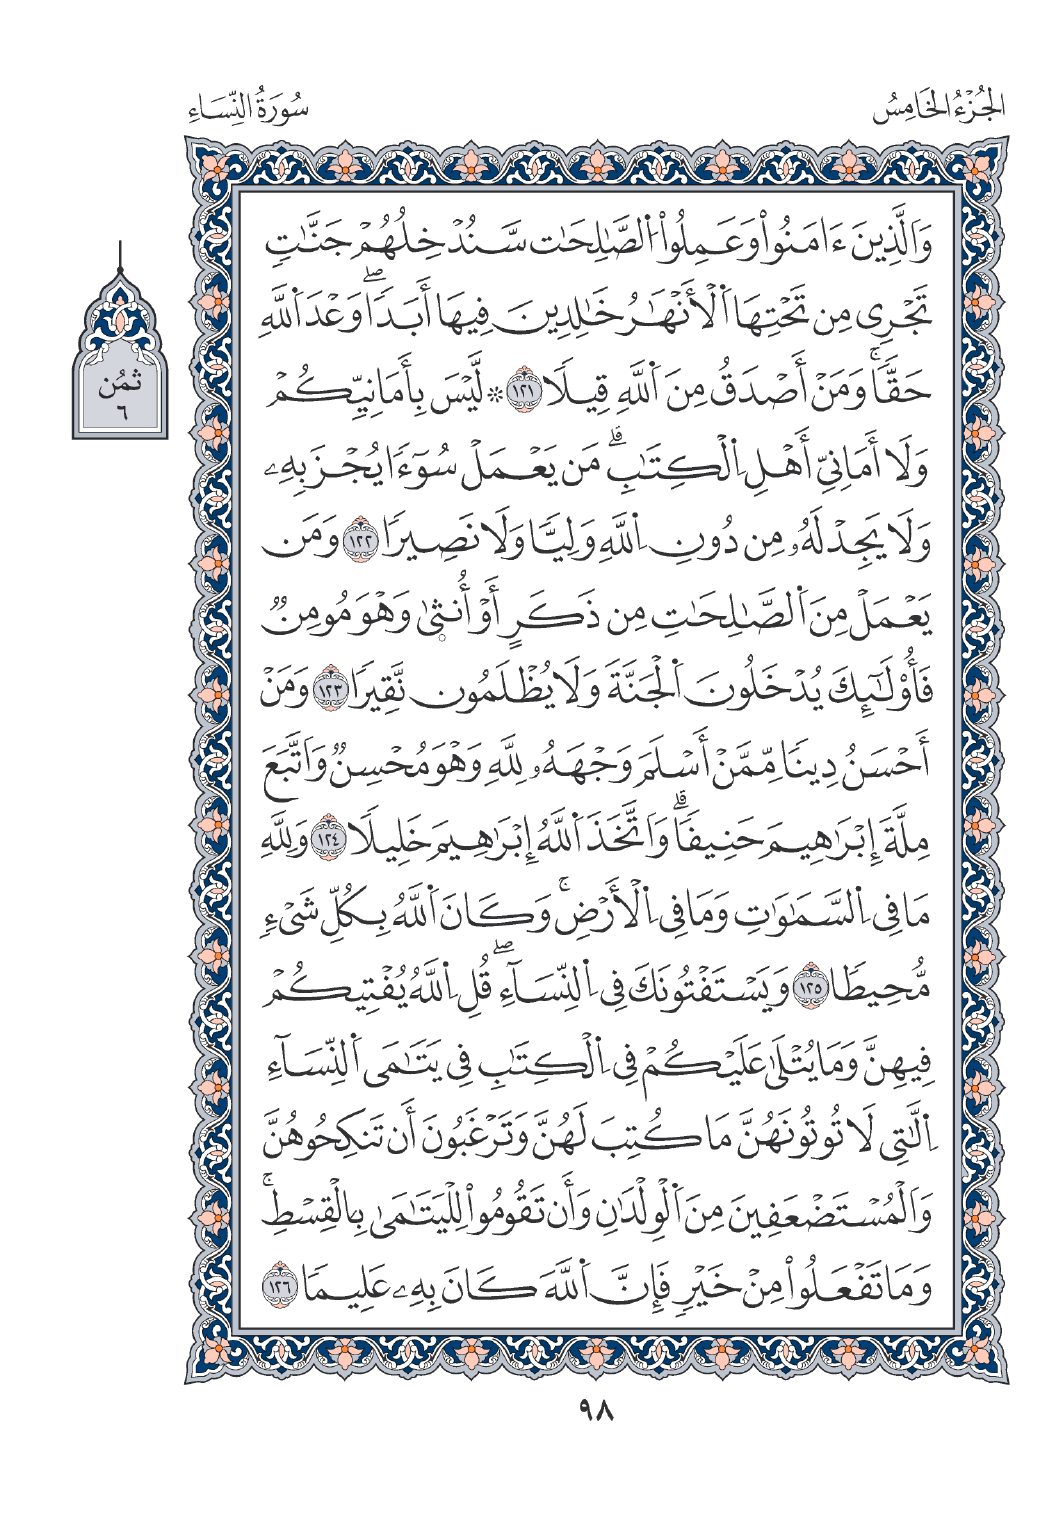 الجُزْءُ الخَامِسُ
سُورَةُ النِّسَاءِ
وَالَّذِينَ ءَامَنُواْ وَعَمِلُواْ اُلصَّٰلِحَٰتِ سَنُدْخِلُهُمْ جَنَّٰتٖ
تَجْرِے مِن تَحْتِهَا اَلْأَنْهَٰرُ خَٰلِدِينَ فِيهَا أَبَداٗۖ وَعْدَ اَللَّهِ
حَقّاٗۚ وَمَنْ أَصْدَقُ مِنَ اَللَّهِ قِيلاٗ ١٢١ ۞ لَّيْسَ بِأَمَانِيِّكُمْ
وَلَا أَمَانِيِّ أَهْلِ اِلْكِتَٰبِۗ مَن يَعْمَلْ سُوٓءاٗ يُجْزَ بِهِۦ
وَلَا يَجِدْ لَهُۥ مِن دُونِ اِللَّهِ وَلِيّاٗ وَلَا نَصِيراٗ ١٢٢ وَمَن
يَعْمَلْ مِنَ اَلصَّٰلِحَٰتِ مِن ذَكَرٍ أَوْ أُنث۪ىٰ وَهْوَ مُومِنٞ
فَأُوْلَٰٓئِكَ يُدْخَلُونَ اَلْجَنَّةَ وَلَا يُظْلَمُونَ نَقِيراٗ ١٢٣ وَمَنْ
أَحْسَنُ دِيناٗ مِّمَّنْ أَسْلَمَ وَجْهَهُۥ لِلَّهِ وَهْوَ مُحْسِنٞ وَاتَّبَعَ
مِلَّةَ إِبْرَٰهِيمَ حَنِيفاٗۗ وَاتَّخَذَ اَللَّهُ إِبْرَٰهِيمَ خَلِيلاٗ ١٢٤ وَلِلَّهِ
مَا فِي اِلسَّمَٰوَٰتِ وَمَا فِي اِلْأَرْضِۚ وَكَانَ اَللَّهُ بِكُلِّ شَيْءٖ
مُّحِيطاٗ ١٢٥ وَيَسْتَفْتُونَكَ فِي اِلنِّسَآءِۖ قُلِ اِللَّهُ يُفْتِيكُمْ
فِيهِنَّ وَمَا يُتْلَىٰ عَلَيْكُمْ فِي اِلْكِتَٰبِ فِي يَتَٰمَى اَلنِّسَآءِ
اِلَّٰتِي لَا تُوتُونَهُنَّ مَا كُتِبَ لَهُنَّ وَتَرْغَبُونَ أَن تَنكِحُوهُنَّ
وَالْمُسْتَضْعَفِينَ مِنَ اَلْوِلْدَٰنِ وَأَن تَقُومُواْ لِلْيَتَٰمَىٰ بِالْقِسْطِۚ
وَمَا تَفْعَلُواْ مِنْ خَيْرٖ فَإِنَّ اَللَّهَ كَانَ بِهِۦ عَلِيماٗ ١٢٦
ثمُن
٦
٩٨